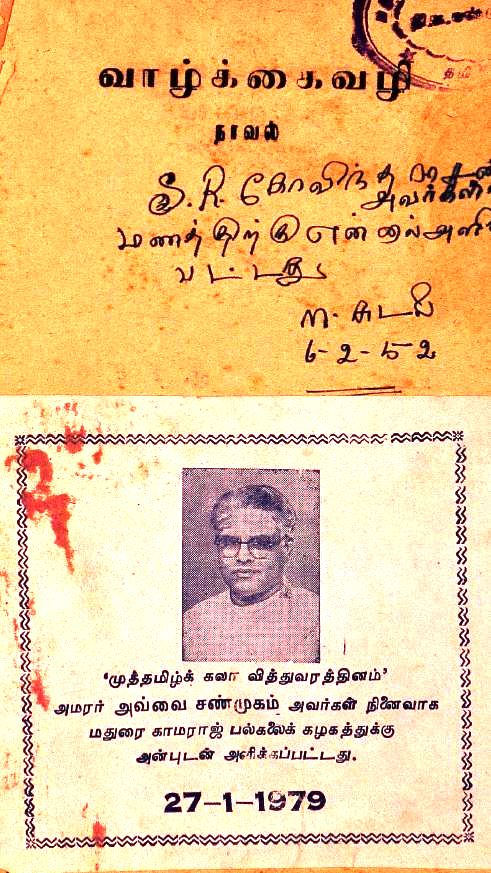 வாழ்க்கைவழி
நாவல்
S. R. கோவிந்த
அவர்களின்
பட்டது
6-2-52
'முத்தமிழ்க் கலா வித்துவரத்தினம்'
அமரர் அவ்வை சண்முகம் அவர்கள் நினைவாக
மதுரை காமராஜ் பல்கலைக் கழகத்துக்கு
அன்புடன் அளிக்கப்பட்டது.
27-1-1979